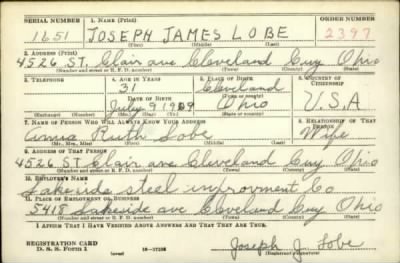 SERIAL NUMBER 1. NAME (Print) ORDER NUMBER
1651 JOSEPH JAMES LOBE 2397
(First) (Middle) (Last)
2. ADDRESS (Print)
4526 ST. Clair ave Cleveland Cuy Ohio
(Number and street or R. F. D. number) (Town) (County) (State)
3. TELEPHONE 4. AGE IN YEARS 5. PLACE OF BIRTH 6. COUNTRY OF CITIZENSHIP
31 Cleveland
(Town or county)
DATE OF BIRTH
July 9 1909 Ohio U.S.A
(Exchange) (Number) (Mo.) (Day) (Yr.) (State or country)
7. NAME OF PERSON WHO WILL ALWAYS KNOW YOUR ADDRESS 8. RELATIONSHIP OF THAT PERSON
Anna Ruth Lobe Wife
(Mr., Mrs., Miss) (First) (Middle) (Last)
9. ADDRESS OF THAT PERSON
4526 ST Clair ave Cleveland Cuy Ohio
(Number and street or R. F. D. number) (Town) (County) (State)
10. EMPLOYER'S NAME
Lakeside steel improvment Co
11. PLACE OF EMPLOYMENT OR BUSINESS
5418 Lakeside ave Cleveland Cuy Ohio
(Number and street or R. F. D. number) (Town) (County) (State)
I AFFIRM THAT I HAVE VERIFIED ABOVE ANSWERS AND THAT THEY ARE TRUE.
REGISTRATION CARD
D. S. S. Form 1 (over) Joseph J. Lobe
(Registrant's signature)